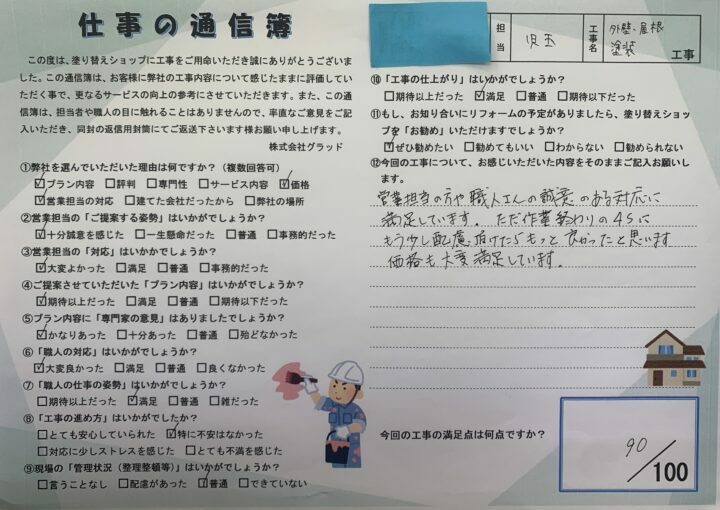 仕事の通信簿
この度は、塗り替えショップに工事をご用命いただき誠にありがとうございま
した。この通信簿は、お客様に弊社の工事内容について感じたままに評価してい
ただく事で、更なるサービスの向上の参考にさせていただきます。また、この通
信簿は、担当者や職人の目に触れることはありませんので、率直なご意見をご記
入いただき、同封の返信用封筒にてご返送下さいます様お願い申し上げます。
株式会社グラッド
①弊社を選んでいただいた理由は何ですか？（複数回答可）
☑プラン内容 □評判 □専門性 □サービス内容 ☑価格
☑営業担当の対応 □建てた会社だったから □弊社の場所
②営業担当の「ご提案する姿勢」はいかがでしょうか？
☑十分誠意を感じた □一生懸命だった □普通 □事務的だった
③営業担当の「対応」はいかかでしょうか？
☑大変よかった □満足 □普通 □事務的だった
④ご提案させていただいた「プラン内容」はいかがでしょうか？
☑期待以上だった □満足 □普通 □期待以下だった
⑤プラン内容に「専門家の意見」はありましたでしょうか？
☑かなりあった □十分あった □普通 □殆どなかった
⑥「職人の対応」はいかがでしょうか？
☑大変良かった □満足 □普通 □良くなかった
⑦「職人の仕事の姿勢」はいかがでしょうか？
□期待以上だった ☑満足 □普通 □雑だった
⑧「工事の進め方」はいかがでしたか？
□とても安心していられた ☑特に不安はなかった
□対応に少しストレスを感じた □とても不満を感じた
⑨現場の「管理状況（整理整頓等）」はいかがでしょうか？
□言うことなし □配慮があった ☑普通 □できていない
担当 児玉 工事名 外壁・屋根
塗装 工事
⑩「工事の仕上がり」はいかがでしょうか？
□期待以上だった ☑満足 □普通 □期待以下だった
⑪もし、お知り合いにリフォームの予定がありましたら、塗り替えショッ
プを「お勧め」いただけますでしょうか？
☑ぜひ勧めたい □勧めてもいい □わからない □勧められない
⑫今回の工事について、お感じいただいた内容をそのままご記入お願いし
ます。
営業担当の方や職人さんの誠意のある対応に
満足しています。ただ作業終わりの4Sに
もう少し配慮頂けたらもっと良かったと思います
価格も大変満足しています。
今回の工事の満足点は何点ですか？
90/100